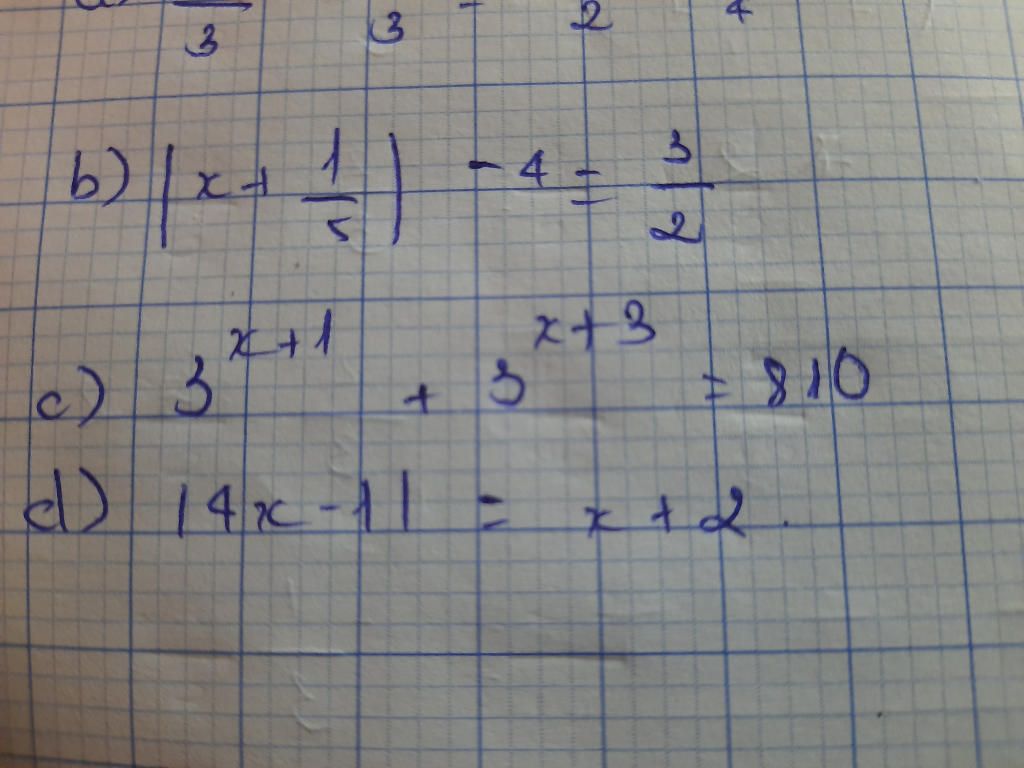 3 3 - 2
b) |x + 1/5| - 4 = 3/2
c) 3^{x+1} + 3^{x+3} = 810
d) |4x - 1| = x + 2.